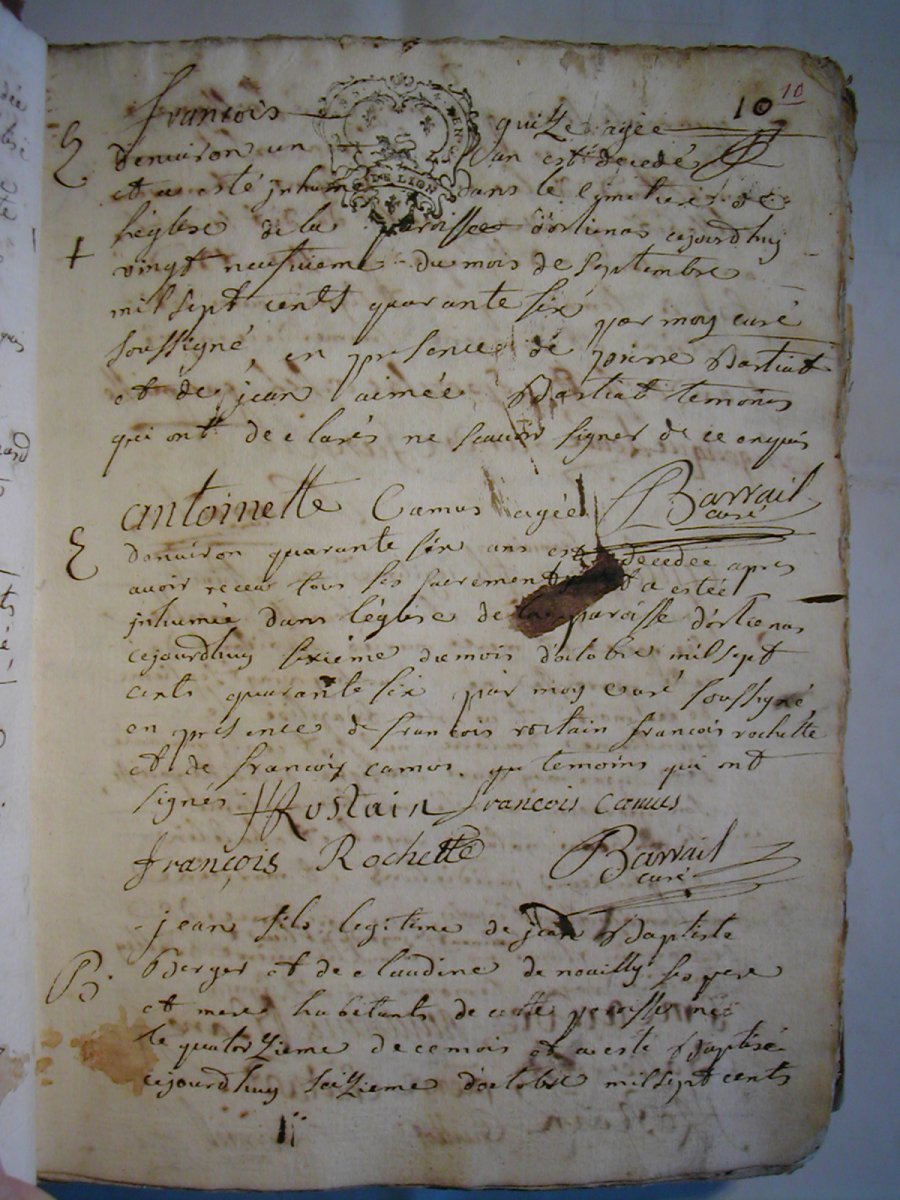 10 10
françois quize agée
denuiron un an est decedé
et a esté jnhumé dans le cymetiere de
l'églize de la paroisse d'ortienas cejourdhuy
vingt neufuieme du mois de septembre
mil sept cents quarante six par moy curé
soussigné, en presence de pierre Bastiat
et de jean aimée Bastiat temoins
qui ont declarés ne scauoir signer de ce enquis
GEN DE LION
antoinette Camus agée Barrail
curé
denuiron quarante six ans est decedée apres
auoir receu tous ses sacrements et a estée
jnhumée dans l'églize de la paroisse d'ortienas
cejourdhuy sixième du mois d'octobre mil sept
cents quarante six par moy curé soussigné,
en presence de françois rostain françois rochette
et de françois camus. temoins qui ont
signés. Rostain françois camus
françois Rochette Barrail
curé
jean fils legitime de jean Baptiste
B. Berger et de claudine de nouilly ses pere
et mere habitants de cette paroisse né
le quatorzieme de ce mois et a esté Baptisé
cejourdhuy seizieme d'octobre mil sept cents